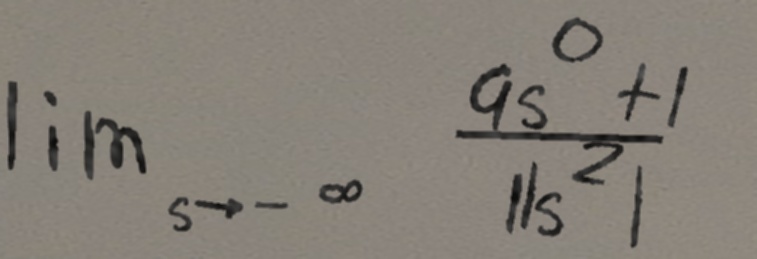 lim s→-∞ (9s^0+1)/(|1s^2|)